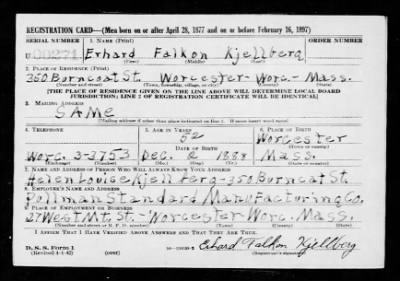 REGISTRATION CARD—(Men born on or after April 28, 1877 and on or before February 16, 1897)
SERIAL NUMBER 1. NAME (Print) ORDER NUMBER
U 00271 Erhard Falkon Kjellberg
(First) (Middle) (Last)
2. PLACE OF RESIDENCE (Print)
350 Burncoat St. Worcester - Worc. - Mass.
(Number and street) (Town, township, village, or city) (County) (State)
[THE PLACE OF RESIDENCE GIVEN ON THE LINE ABOVE WILL DETERMINE LOCAL BOARD
JURISDICTION; LINE 2 OF REGISTRATION CERTIFICATE WILL BE IDENTICAL]
3. MAILING ADDRESS
SAME
[Mailing address if other than place indicated on line 2. If same insert word same]
4. TELEPHONE 5. AGE IN YEARS 6. PLACE OF BIRTH
52 Worcester
DATE OF BIRTH (Town or county)
Worc. 3-3753 Dec. 1888 Mass.
(Exchange) (Number) (Mo.) (Day) (Yr.) (State or country)
7. NAME AND ADDRESS OF PERSON WHO WILL ALWAYS KNOW YOUR ADDRESS
Helen Louise Kjellberg - 350 Burncoat St.
8. EMPLOYER'S NAME AND ADDRESS
Pullman Standard Manufacturing Co.
9. PLACE OF EMPLOYMENT OR BUSINESS
27 West Mt. St. - Worcester Worc. Mass.
(Number and street or R. F. D. number) (Town) (County) (State)
I AFFIRM THAT I HAVE VERIFIED ABOVE ANSWERS AND THAT THEY ARE TRUE.
D. S. S. Form 1
(Revised 4-1-42) (over) Erhard Falkon Kjellberg
(Registrant's signature)